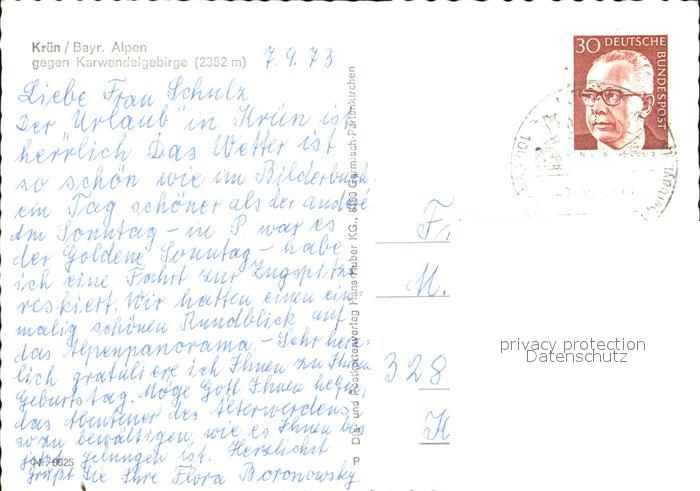 Krün / Bayr. Alpen
gegen Karwendelgebirge (2352 m)
7.9.73
Liebe Frau Schulz
Der Urlaub in Krün ist
herrlich. Das Wetter ist
so schön wie im Bilderbuch
ein Tag schöner als der andere.
Am Sonntag - in P war es
der Goldene Sonntag - habe
ich eine Fahrt zur Zugspitze
riskiert. Wir hatten einen ein
malig schönen Rundblick auf
das Alpenpanorama. - Sehr herz
lich gratuliere ich Ihnen zu Ihrem
Geburtstag. Möge Gott Ihnen helfen,
das Abenteuer des Älterwerdens
so zu bewältigen, wie es Ihnen bis
jetzt gelungen ist. Herzlichst
grüßt Sie Ihre Flora Boronowsky.
Nr. 6625
P Dia- und Postkartenverlag Hans Huber KG., 8100 Garmisch-Partenkirchen
30 DEUTSCHE
BUNDESPOST
F
M.
328
K
privacy protection
Datenschutz